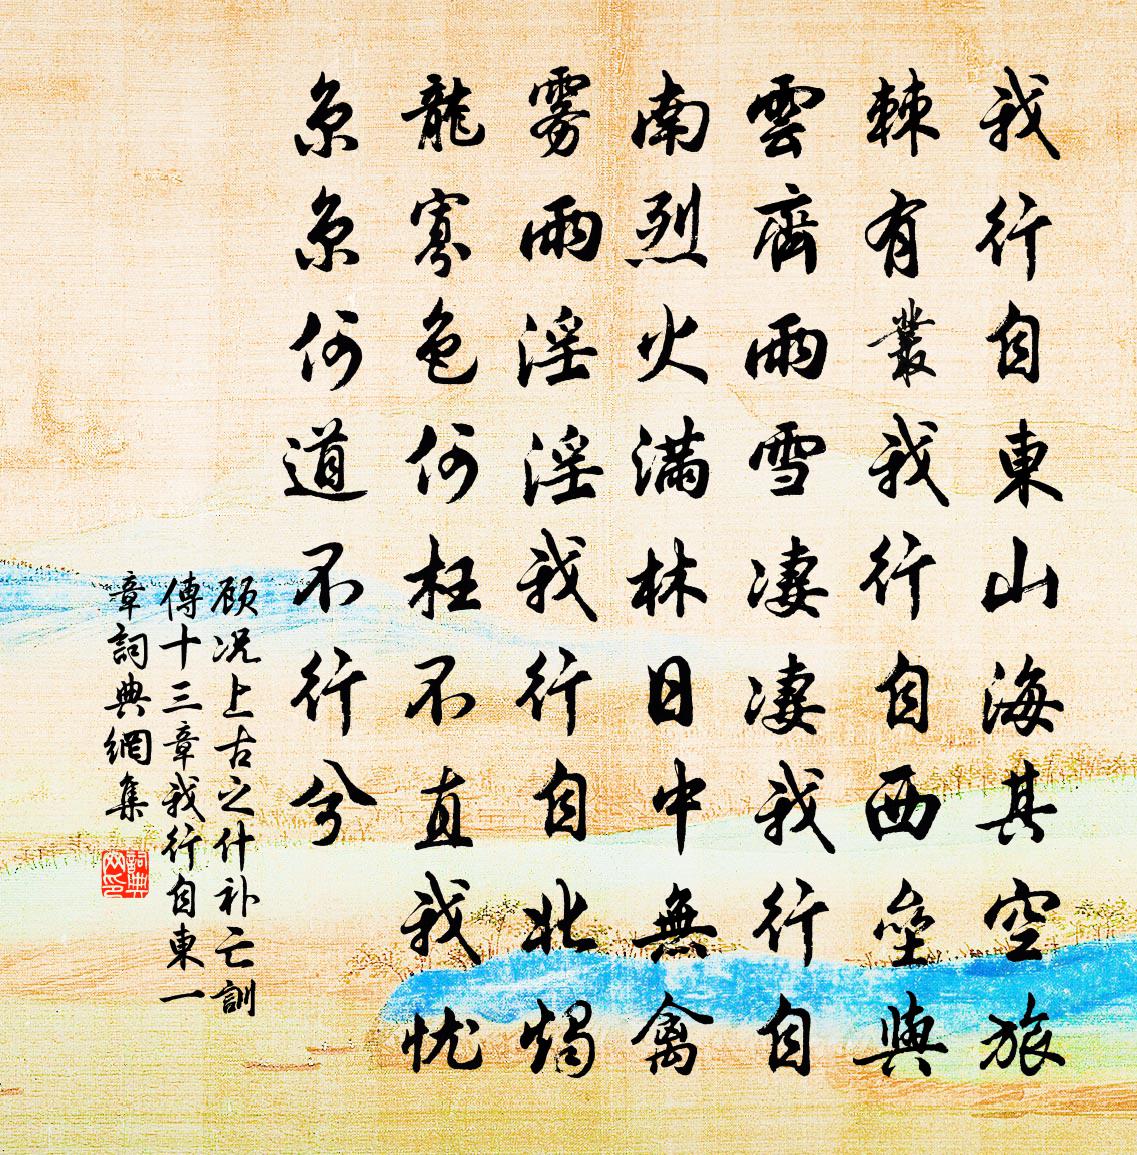 我行自東山海其空旅
棘有叢我行自西垒與
雲齊雨雪凄凄我行自
南烈火滿林日中無禽
雾雨淫淫我行自北燭
龍寡色何枉不直我忧
京京何道不行兮
顾况上古之什补亡訓
傳十三章我行自東一
章詞典網集
詞典网印